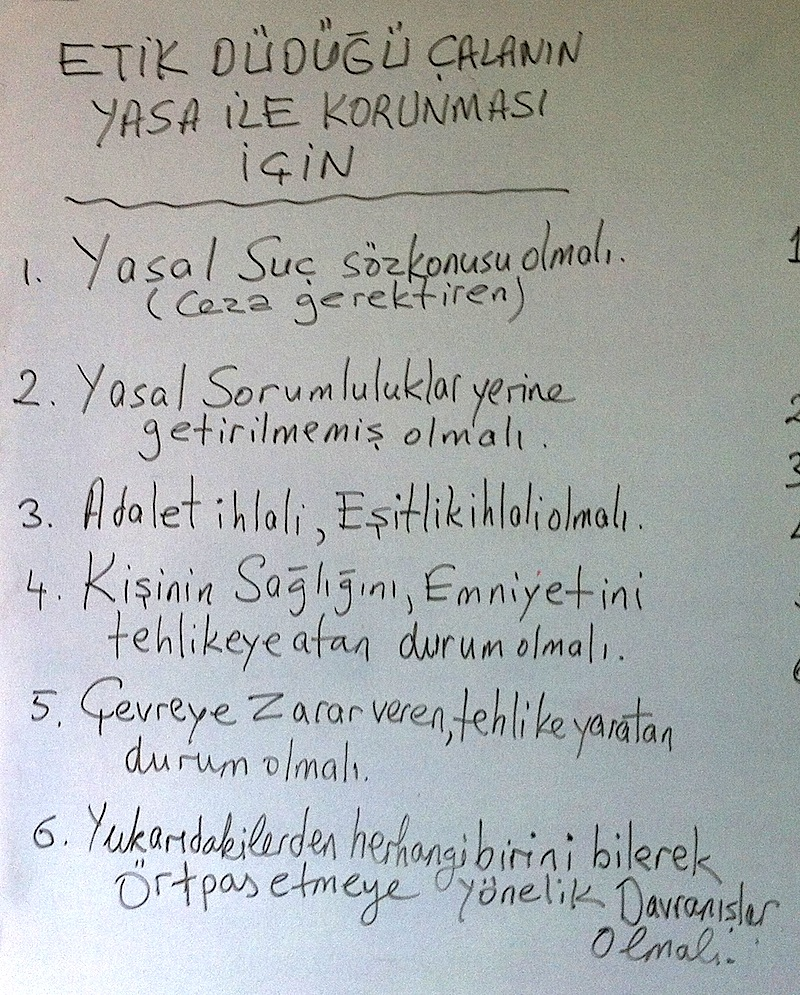 ETİK DÜDÜĞÜ ÇALANIN
YASA İLE KORUNMASI
İÇİN
1. Yasal Suç sözkonusu olmalı.
(Ceza gerektiren)
2. Yasal Sorumluluklar yerine
getirilmemiş olmalı.
3. Adalet ihlali, Eşitlik ihlali olmalı.
4. Kişinin Sağlığını, Emniyetini
tehlikeye atan durum olmalı.
5. Çevreye Zarar veren, tehlike yaratan
durum olmalı.
6. Yukarıdakilerden herhangi birini bilerek
Örtpas etmeye yönelik Davranışlar
Olmalı.